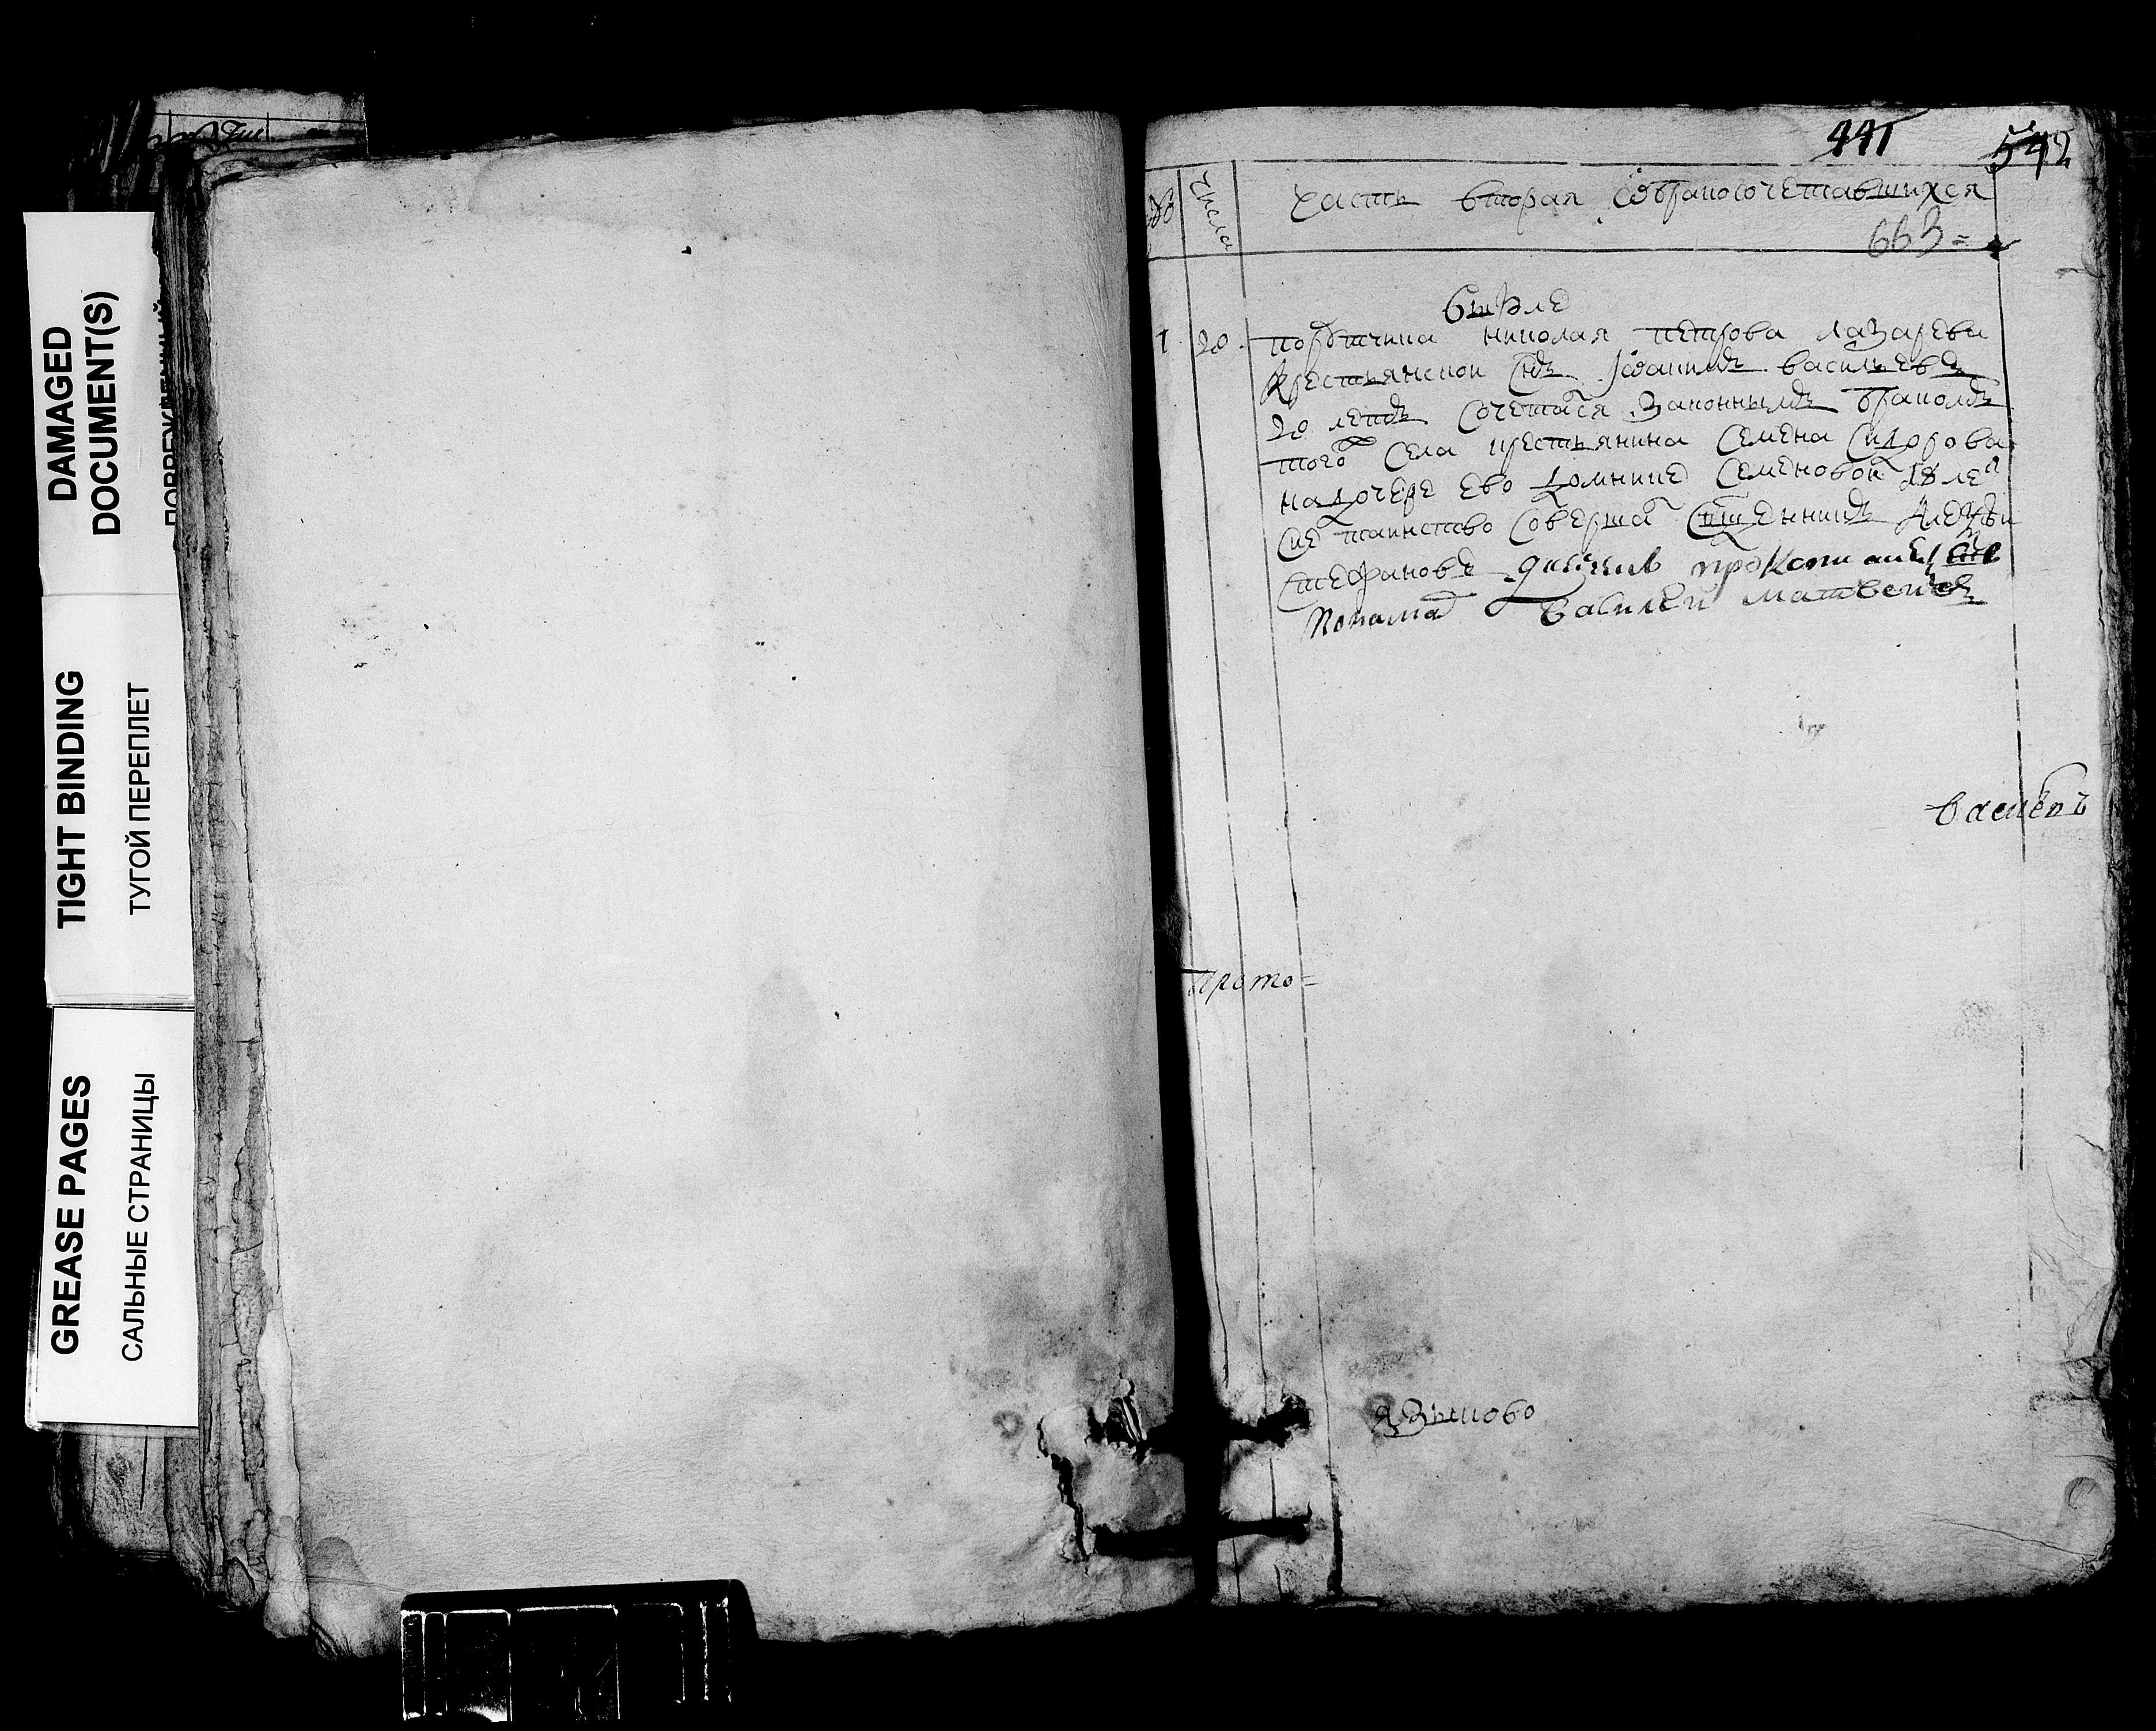 DAMAGED
DOCUMENT(S)
TIGHT BINDING
ТУГОЙ ПЕРЕПЛЕТ
GREASE PAGES
САЛЬНЫЕ СТРАНИЦЫ
441 542
числа часть вторая ѡбракосочетавшихся
663
вıюле
1 20 порутчика николая петрова лазарева
крестьянской снъ иѡаннъ васильевъ
20 летъ сочетася законнымъ бракомъ
того села крестьянина семена сидорова
на дочере ево домнике семеновой 18 ле
сие таинство соверша сщенникъ алеѯѣи
стефановъ
понама василеи матвеевъ
васмьвъ
прото=
языково